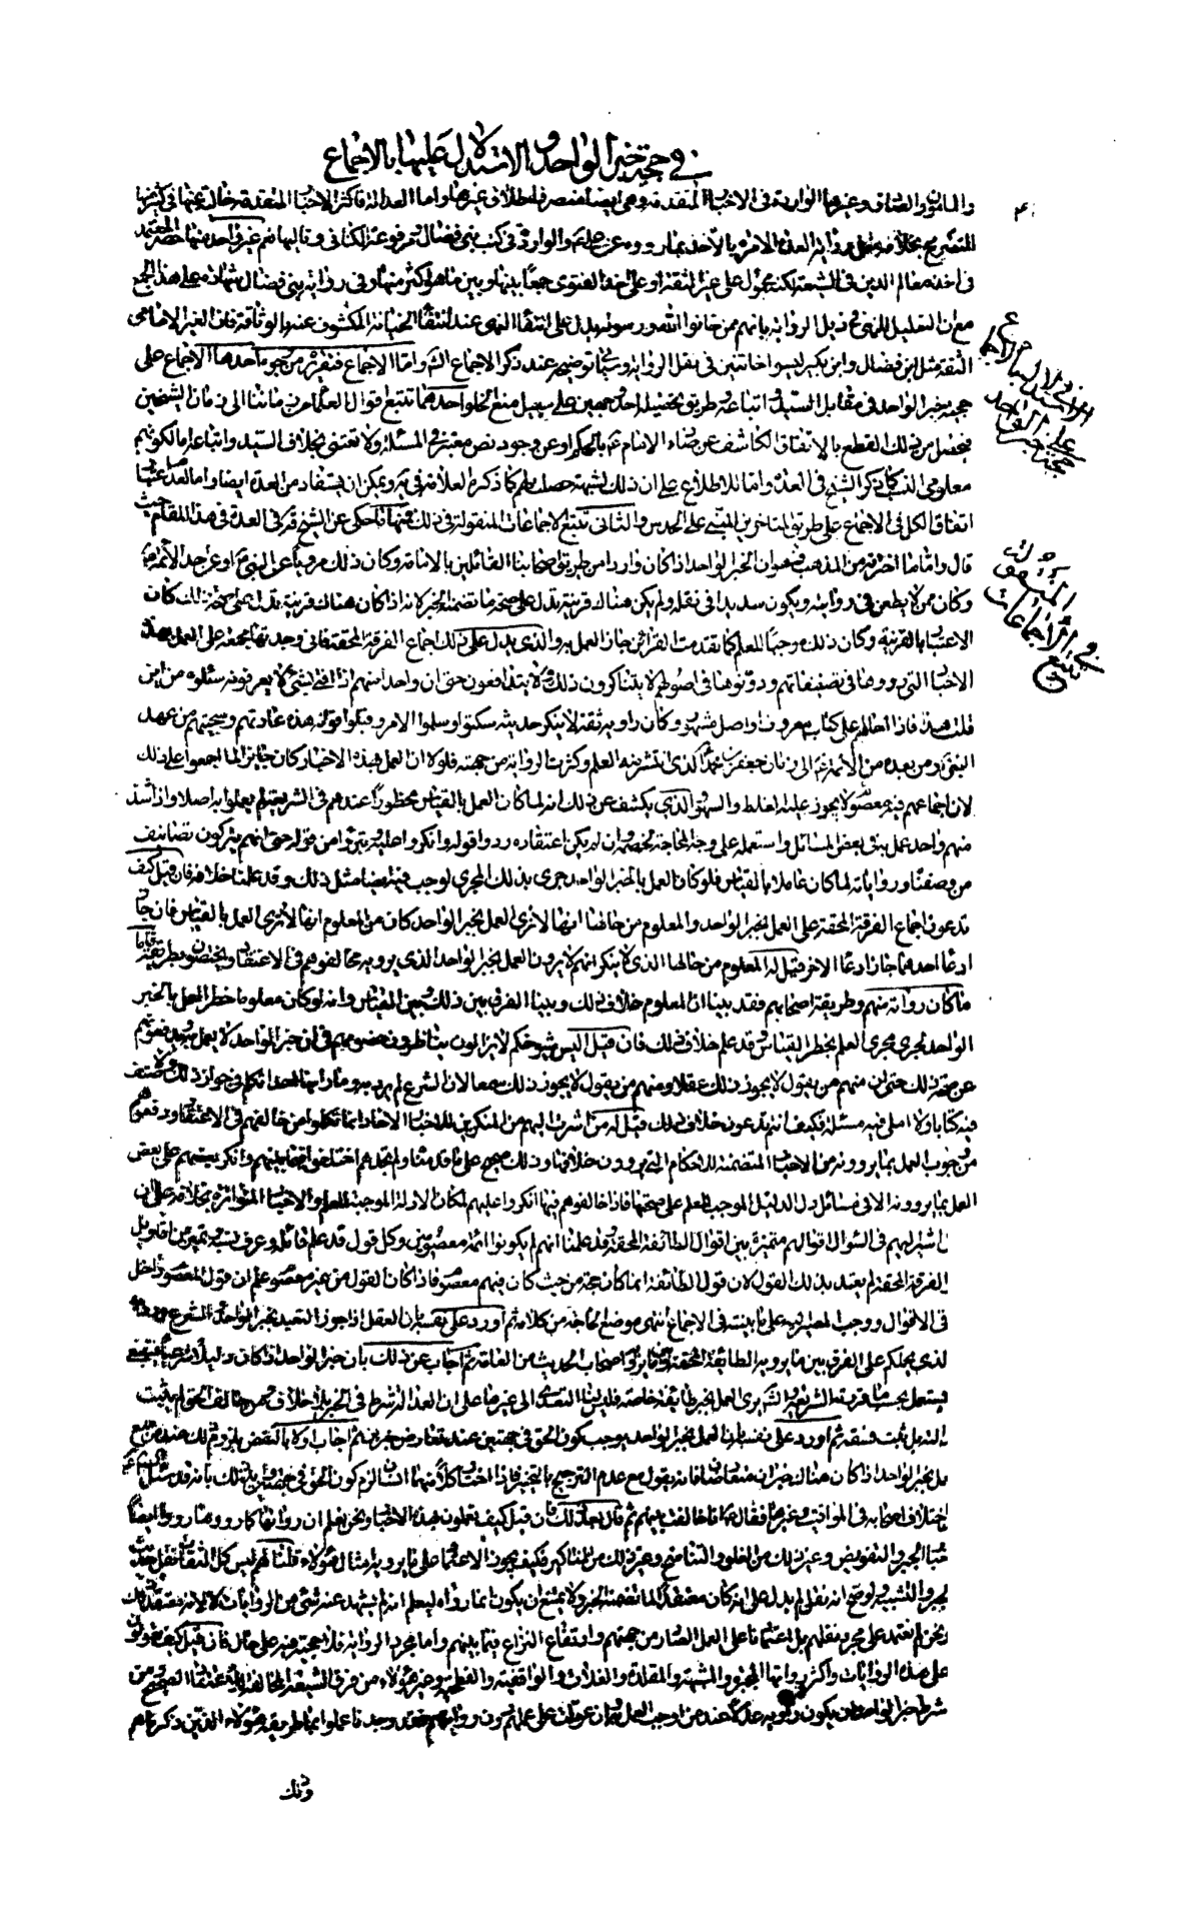 في حجية خبر الواحد و الاستدلال عليها بالاجماع
والمأمون والصادق وغيرها الواردة في الاخبار المتقدمة وهي ايضا منصرفة لاطلاق غيرها واما العدالة فاكثر الاخبار المتقدمة خالية عنها في كثير منها
التصريح بخلافه مثل رواية العدة الامرة بالاخذ بما رووه عن علي ع والواردة في كتب بني فضال ومرفوعة الكناني وتاليها نعم في غير واحد منها حصر المعتمد
في اخذ معالم الدين في الشيعة لكنه محمول على غير الثقة او على اخذ الفتوى جمعا بينها وبين ما هو اكثر منها وفي رواية بني فضال شهادة على هذا الجمع
مع ان التعليل للنهي في ذيل الرواية بانهم ممن خانوا الله ورسوله يدل على انتفاء النهي عند انتفاء الخيانة المكشوف عنه بالوثاقة فان الغير الامامي
الثقة مثل ابن فضال وابن بكير ليسوا خائنين في نقل الرواية وسيأتي توضيحه عند ذكر الاجماع انش واما الاجماع فتقريره من وجوه احدها الاجماع على
حجية خبر الواحد في مقابل السيد و اتباعه وطريق تحصيله احد وجهين على سبيل منع الخلو احدهما تتبع اقوال العلماء من زماننا الى زمان الشيخين
فيحصل من ذلك القطع بالاتفاق الكاشف عن رضاء الامام ع بالحكم او عن وجود نص معتبر في المسئلة ولا يعتنى بخلاف السيد واتباعه اما لكونهم
معلومي النسب كما ذكر الشيخ في العدة واما للاطلاع على ان ذلك لشبهة حصلت لهم كما ذكره العلامة في يه ويمكن ان يستفاد من العدة ايضا واما لعدم اعتبار
اتفاق الكل في الاجماع على طريق المتاخرين المبتني على الحدس والثاني تتبع الاجماعات المنقولة في ذلك فمنها ما حكي عن الشيخ قده في العدة في هذا المقام حيث
قال واما ما اخترته من المذهب فهو ان الخبر الواحد اذا كان واردا من طريق اصحابنا القائلين بالامامة وكان ذلك مرويا عن النبي ص او عن احد الائمة ع
وكان ممن لا يطعن في روايته ويكون سديدا في نقله ولم يكن هناك قرينة تدل على صحة ما تضمنه الخبر لانه اذا كان هناك قرينة تدل على صحة ذلك كان
الاعتبار بالقرينة وكان ذلك موجبا للعلم كما تقدمت القرائن جاز العمل به والذي يدل على ذلك اجماع الفرقة المحقة فاني وجدتها مجمعة على العمل بهذه
الاخبار التي رووها في تصنيفاتهم ودونوها في اصولهم لا يتناكرون ذلك ولا يتدافعون حتى ان واحدا منهم اذا افتى بشئ لا يعرفونه سئلوه من اين
قلت هذا فاذا احالهم على كتاب معروف او اصل مشهور وكان راويه ثقة لا ينكر حديثه سكتوا وسلموا الامر وقبلوا قوله هذه عادتهم وسجيتهم من عهد
النبي ص ومن بعده من الائمة ع الى زمان جعفر بن محمد الذي انتشر منه العلم وكثرت الرواية من جهته فلولا ان العمل بهذه الاخبار كان جايزا لما اجمعوا على ذلك
لان اجماعهم فيه معصوم لا يجوز عليه الغلط والسهو والذي يكشف عن ذلك انه لما كان العمل بالقياس محظورا عندهم في الشريعة لم يعملوا به اصلا واذا شذ
منهم واحد عمل به في بعض المسائل و استعمله على وجه المحاجة لخصمه وان لم يكن اعتقاده ردوا قوله وانكروا عليه وتبرئوا من قوله حتى انهم يتركون تصانيف
من وصفناه ورواياته لما كان عاملا بالقياس فلو كان العمل بالخبر الواحد جرى بذلك المجرى لوجب فيه ايضا مثل ذلك وقد علمنا خلافه فان قيل كيف
تدعون اجماع الفرقة المحقة على العمل بخبر الواحد والمعلوم من حالها انها لا ترى العمل بخبر الواحد كما ان من المعلوم انها لا ترى العمل بالقياس فان جاز
ادعاء احدهما جاز ادعاء الاخر قيل له المعلوم من حالها الذي لا ينكر انهم لا يرون العمل بخبر الواحد الذي يرويه مخالفوهم في الاعتقاد ويختصون بطريقه فاما
ما كان رواته منهم وطريقه اصحابهم فقد بينا ان المعلوم خلاف ذلك وبينا الفرق بين ذلك وبين القياس وانه لو كان معلوما حظر العمل بالخبر
الواحد لجرى مجرى العلم بحظر القياس وقد علم خلاف ذلك فان قيل اليس شيوخكم لا يزالون يناظرون خصومهم في ان خبر الواحد لا يعمل به ويدفعونهم
عن صحة ذلك حتى ان منهم من يقول لا يجوز ذلك عقلا ومنهم من يقول لا يجوز ذلك سمعا لان الشرع لم يرد به وما راينا احدا تكلم في جواز ذلك ولا صنف
فيه كتابا ولا املى فيه مسئلة فكيف انتم تدعون خلاف ذلك قيل له من اشرت اليهم من المنكرين للاخبار الاحاد انما تكلموا من خالفهم في الاعتقاد ودفعوهم
من وجوب العمل بما يروونه من الاخبار المتضمنة للاحكام التي يروون خلافها وذلك صحيح على ما قدمنا ولم نجدهم اختلفوا فيما بينهم وانكر بعضهم على بعض
العمل بما يروونه الا في مسائل دل الدليل الموجب للعلم على صحتها فاذا خالفوهم فيها انكروا عليهم لمكان الادلة الموجبة للعلم والاخبار المتواترة بخلافه على ان
الذين اشير اليهم في السؤال اقوالهم متميزة بين اقوال الطائفة المحقة وقد علمنا انهم لم يكونوا ائمة معصومين وكل قول قد علم قائله وعرف نسبه وتميز من اقاويل
الفرقة المحقة لم يعتد بذلك القول لان قول الطائفة انما كان حجة من حيث كان فيهم معصوم فاذا كان القول من غير معصوم علم ان قول المعصوم داخل
في الاقوال ووجب المصير اليه على ما بينته في الاجماع انتهى موضع الحاجة من كلامه ثم اورد على نفسه بان العقل اذا جوز التعبد بخبر الواحد والشرع ورد به
الذي يحملكم على الفرق بين ما يرويه الطائفة المحقة وبين ما يرويه اصحاب الحديث من العامة ثم اجاب عن ذلك بان خبر الواحد اذا كان دليلا شرعيا فينبغي
يستعمل بحسب ما قررته الشريعة والشارع يرى العمل بخبر طائفة خاصة فليس لنا التعدي الى غيرها على ان العدالة شرط في الخبر بلا خلاف ومن خالف الحق لم يثبت
عدالته بل ثبت فسقه ثم اورد على نفسه بان العمل بخبر الواحد يوجب كون الحق في جهتين عند تعارض خبرين ثم اجاب اولا بالنقض بلزوم ذلك عند من منع
العمل بخبر الواحد اذا كان هناك خبران متعارضان فانه يقول مع عدم الترجيح بالتخيير فاذا اختار كلا منهما انسان لزم كون الحق في جهتين وايد ذلك بانه قد سئل
اختلاف اصحابه في المواقيت وغيرها فقال ع انا خالفت بينهم ثم قال بعد ذلك فان قيل كيف تعملون بهذه الاخبار ونحن نعلم ان رواتها كما رووها رووا ايضا
اخبار الجبر والتفويض وغير ذلك من الغلو والتناسخ وغير ذلك من المناكير فكيف يجوز الاعتماد على ما يرويه امثال هؤلاء قلنا لهم ليس كل الثقات نقل حديث
الجبر والتشبيه ولو صح انه نقله لم يدل على انه كان معتقدا لما تضمنه الخبر ولا يمتنع ان يكون انما رواه ليعلم انه لم يشذ عنه شئ من الروايات لا لانه معتقد ذلك
ونحن لم نعتمد على مجرد نقلهم بل اعتمادنا على العمل الصادر من جهتهم وارتفاع النزاع فيما بينهم واما مجرد الرواية فلا حجية فيه على حال فان قيل كيف تعولون
على هذه الروايات واكثر رواتها المجبرة والمشبهة والمقلدة والغلاة والواقفية والفطحية وغير هؤلاء من فرق الشيعة المخالفة للاعتقاد الصحيح ومن
شرط خبر الواحد ان يكون راويه عدلا عند من اوجب العمل به وان عولت على عملهم دون روايتهم فقد وجدناهم عملوا بما طريقه هؤلاء الذين ذكرناهم
وذلك
في الاستدلال بالاجماع على حجية خبر الواحد
في تتبع الاجماعات المنقولة